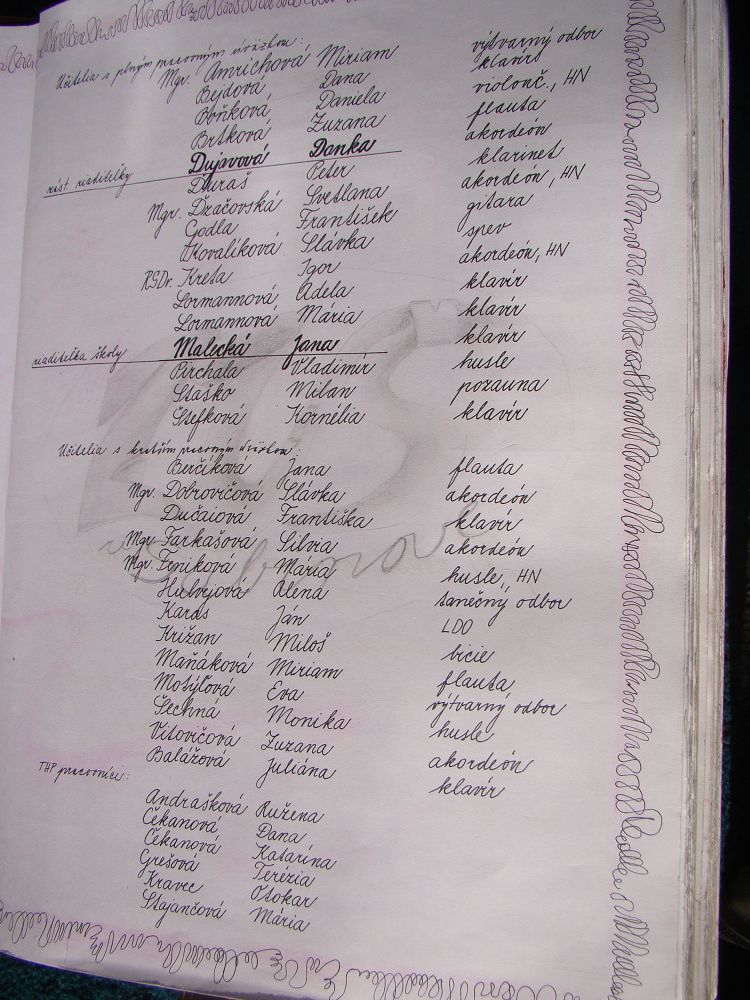 Učitelia s plným pracovným úväzkom:
Mgr. Amrichová Miriam výtvarný odbor
Bejdová Dana klavír
Daniela violonč., HN
Brtková Zuzana flauta
zást. riaditeľky Dujavová Danka akordeón
Duraš Peter klarinet
Mgr. Dzačovská Svetlana akordeón, HN
Godla František gitara
Kovalíková Slávka spev
RSDr. Kreta Igor akordeón, HN
Lormannová Adela klavír
Lormannová Mária klavír
riaditeľka školy Malecká Jana klavír
Pirchala Vladimír husle
Staško Milan pozauna
Štefková Kornélia klavír
ZUŠ
v Sabinove
Učitelia s kratším pracovným úväzkom:
Berčíková Jana flauta
Mgr. Dobrovičová Slávka akordeón
Dučaiová Františka klavír
Mgr. Farkašová Silvia akordeón
Mgr. Feníková Mária husle, HN
Alena tanečný odbor
Karas Ján LDO
Križan Miloš bicie
Maňáková Miriam flauta
Motýľová Eva výtvarný odbor
Šechná Monika husle
Vitovičová Zuzana akordeón
Balážová Juliána klavír
THP pracovníci:
Andrašková Ružena
Čekanová Dana
Čekanová Katarína
Grešová Terézia
Kravec Otokar
Stajančová Mária